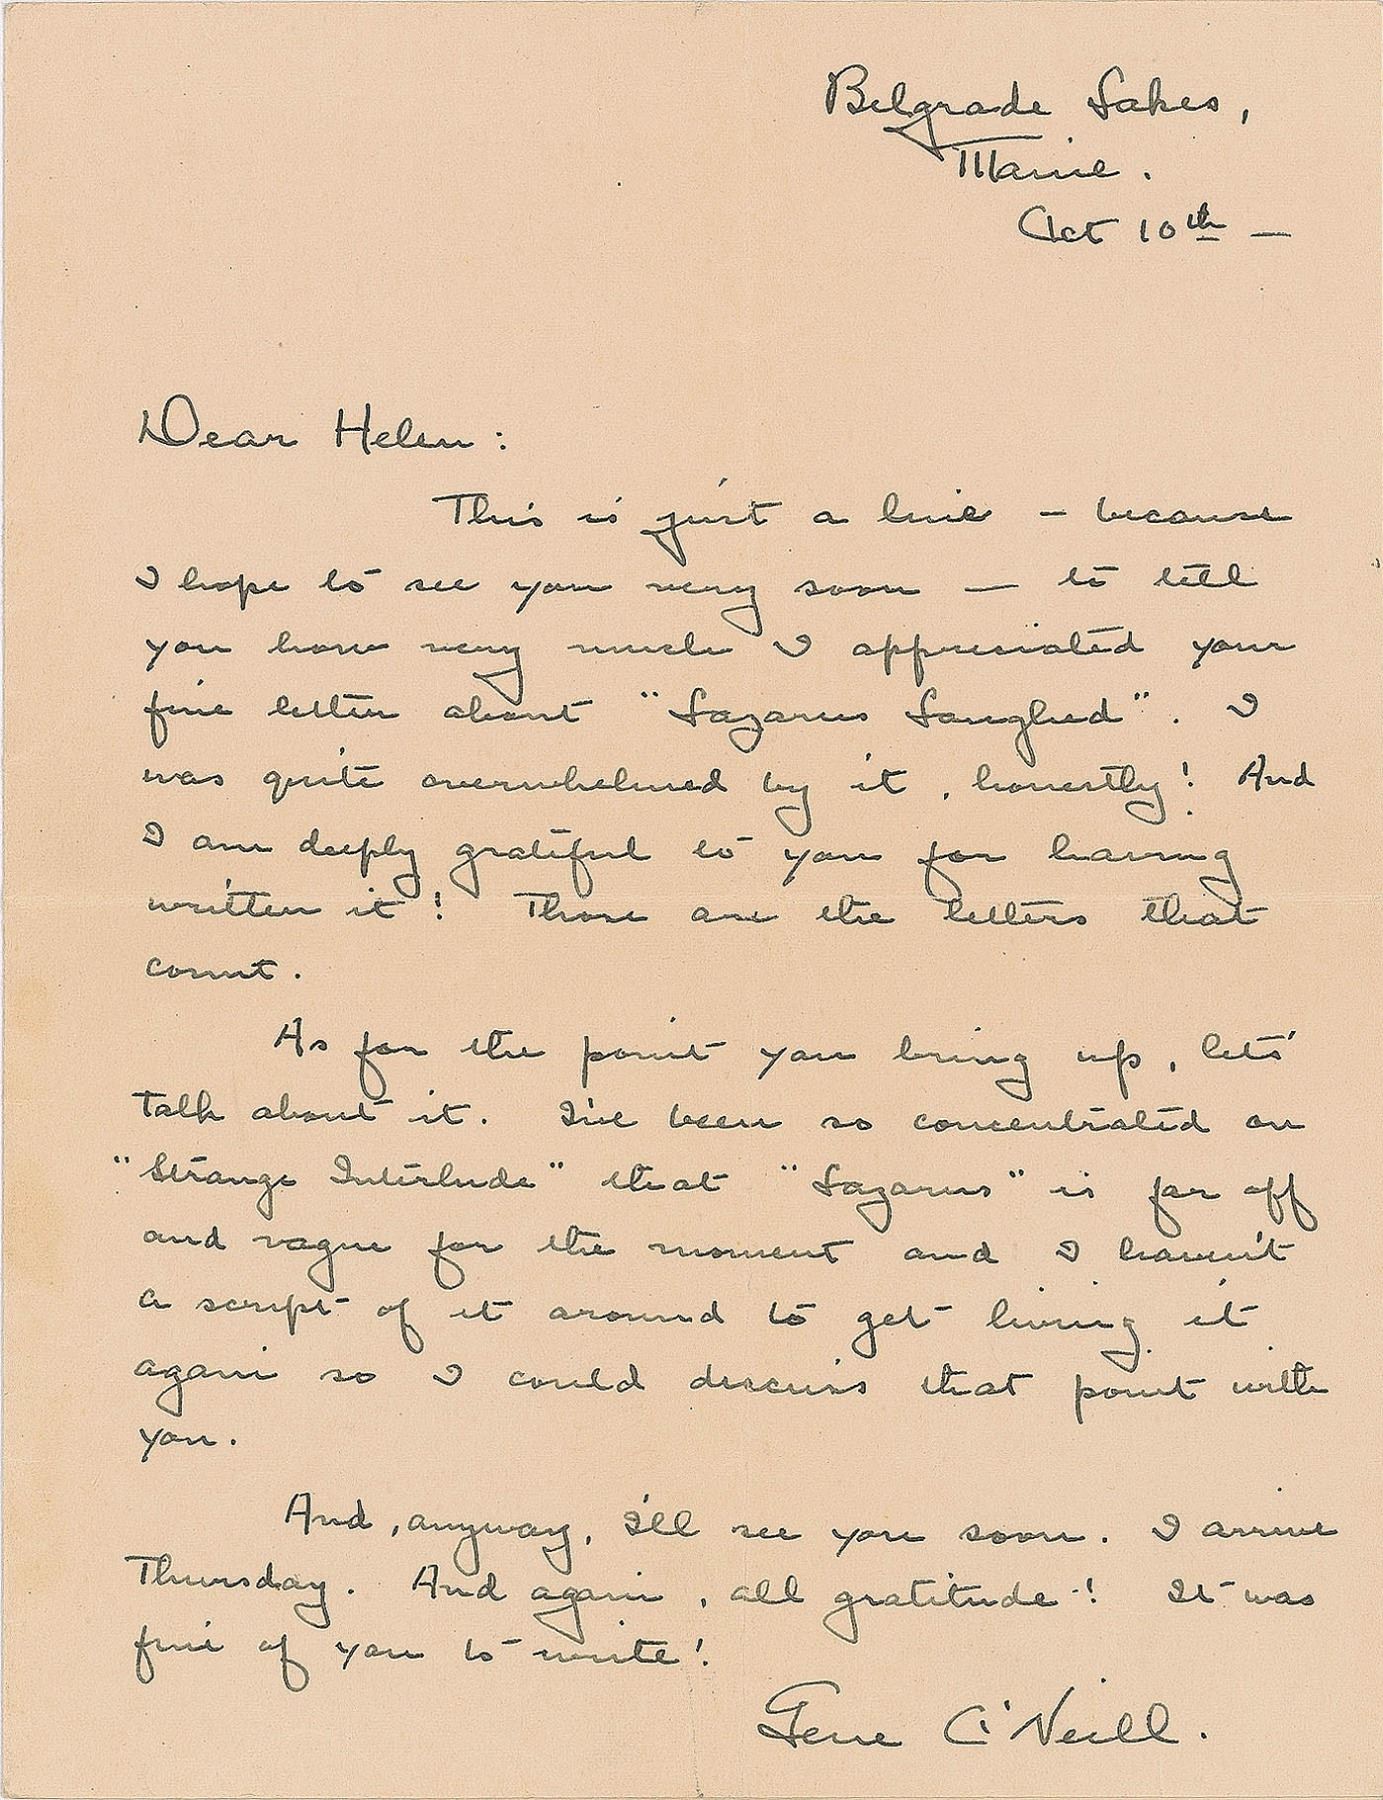 Belgrade Lakes,
Maine.
Oct 10th —
Dear Helen:
This is just a line — because
I hope to see you very soon — to tell
you how very much I appreciated your
fine letter about "Lazarus Laughed". I
was quite overwhelmed by it, honestly! And
I am deeply grateful to you for having
written it! Those are the letters that
count.
As for the point you bring up, lets'
talk about it. I've been so concentrated on
"Strange Interlude" that "Lazarus" is far off
and vague for the moment and I haven't
a script of it around to get living it
again so I could discuss that point with
you.
And, anyway, I'll see you soon. I arrive
Thursday. And again, all gratitude! It was
fine of you to write!
Gene O'Neill.